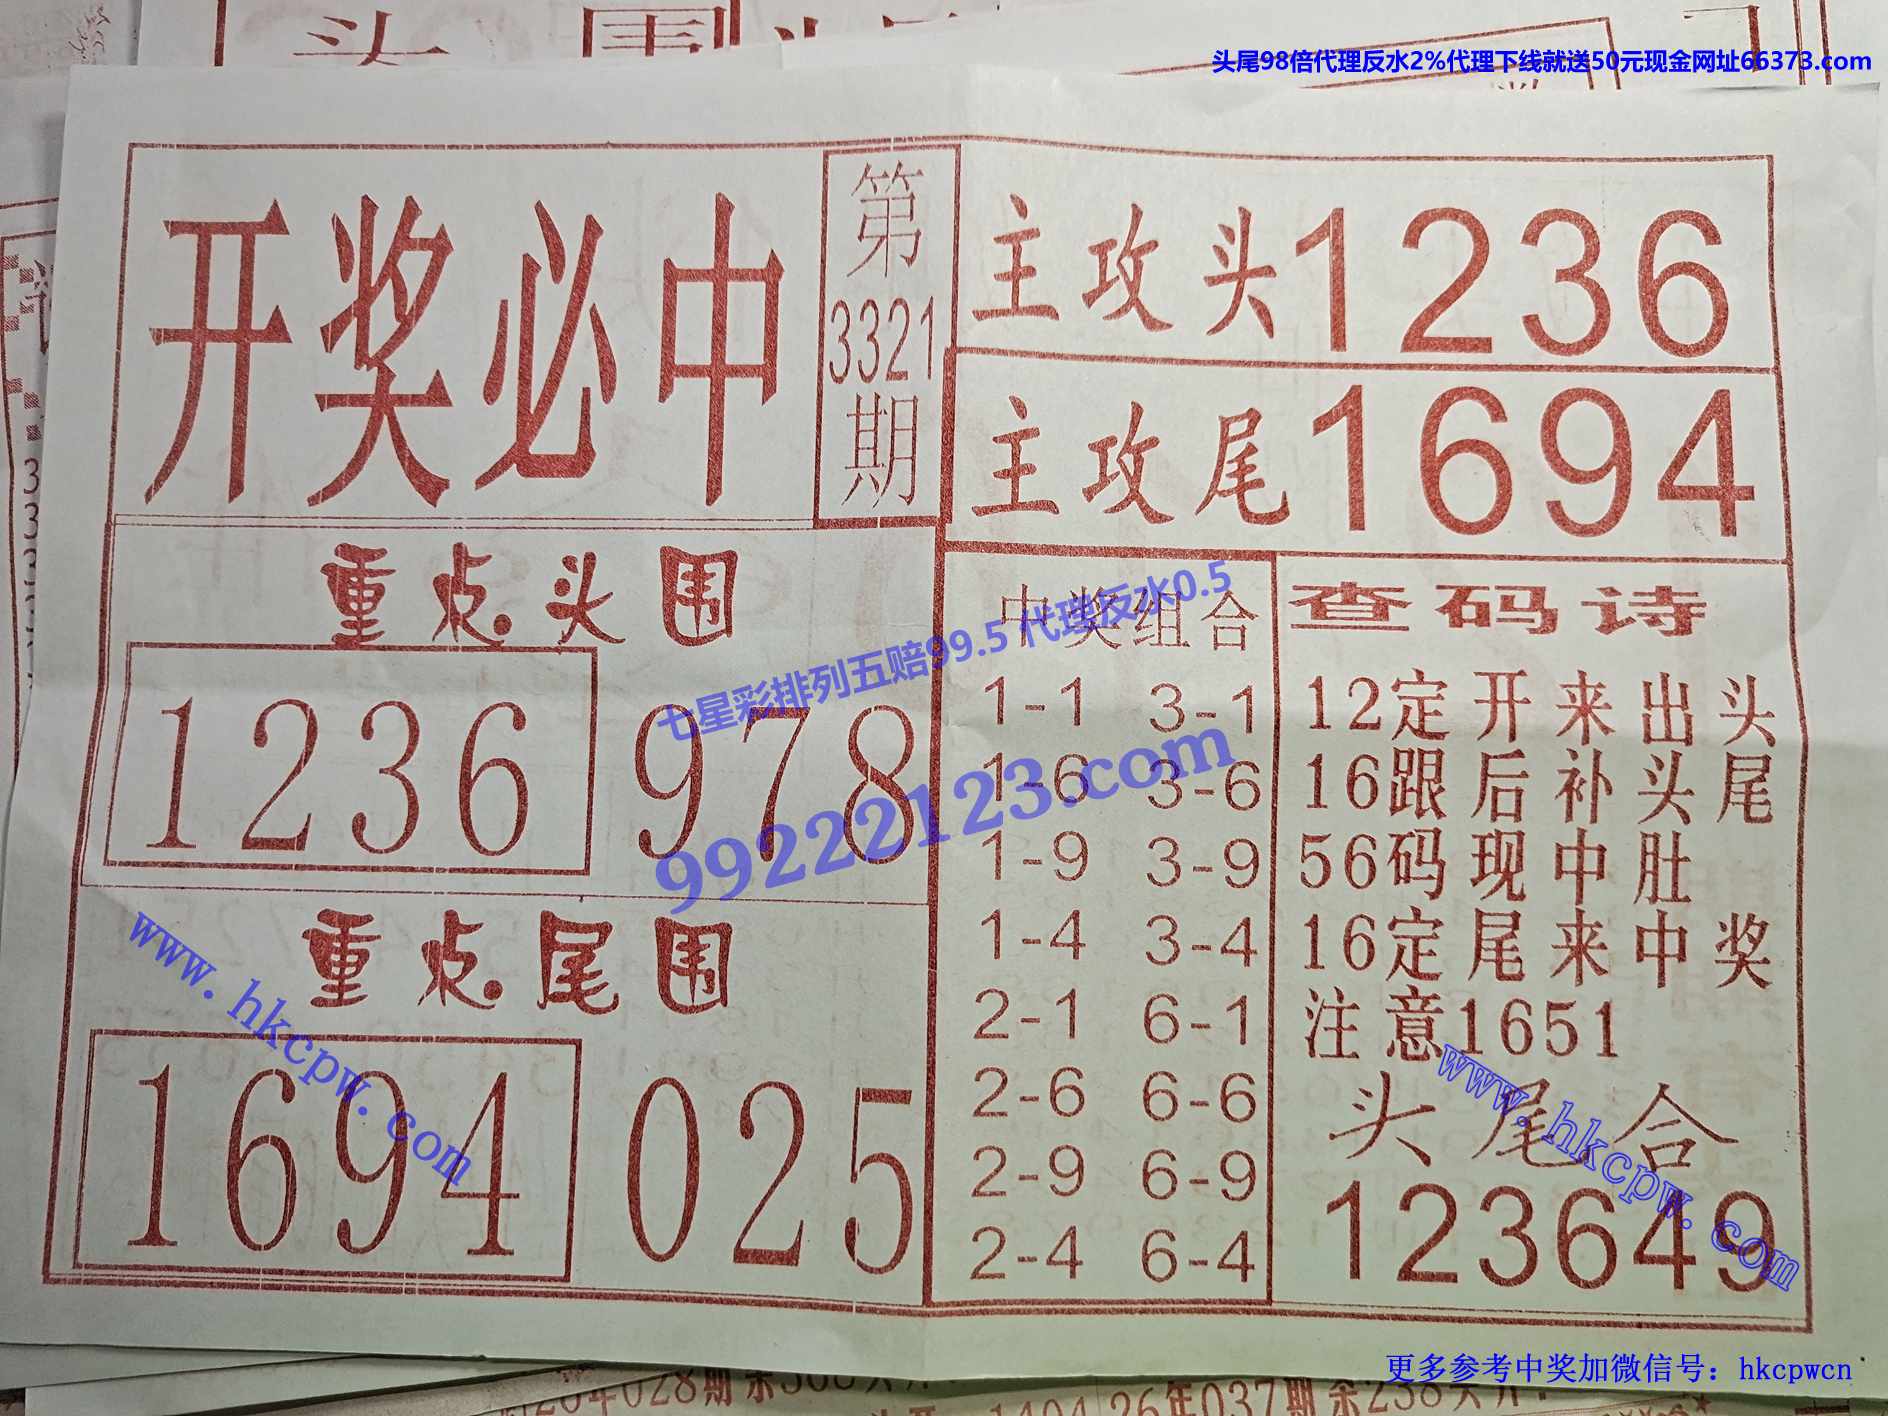 头尾98倍代理反水2%代理下线就送50元现金网址66373.com
头 围
开奖必中
第
3321
期
主攻头1236
主攻尾1694
重点头围
1236 978
重点尾围
1694 025
中奖组合
1-1 3-1
1-6 3-6
1-9 3-9
1-4 3-4
2-1 6-1
2-6 6-6
2-9 6-9
2-4 6-4
查码诗
12定开来出头
16跟后补头尾
56码现中肚
16定尾来中奖
注意1651
头尾合
123649
七星彩排列五赔99.5 代理反水0.5
99222123.com
www.hkcpw.com
www.hkcpw.com
更多参考中奖加微信号：hkcpwcn
26年037期